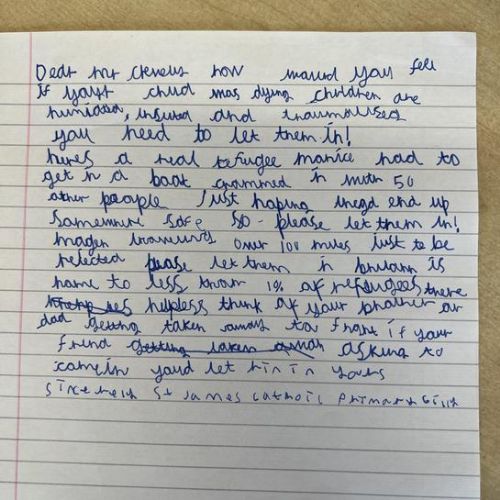 Dear mr clevelus how would you feel
If your child was dying children are
humiated, insuted and traumatised
you need to let them in!
heres a real refugee monice had to
get in a boat crammed in with 50
other people Just hoping theyd end up
somewhere safe so - please let them in!
Imagen traveling over 100 miles Just to be
rejected please let them in britain is
home to less than 1% of refugees there
helpless think of your brother or
dad getting taken away to fight if your
frind getting taken away asking to
comein youd let him in yours
sincerely St James catholic primary